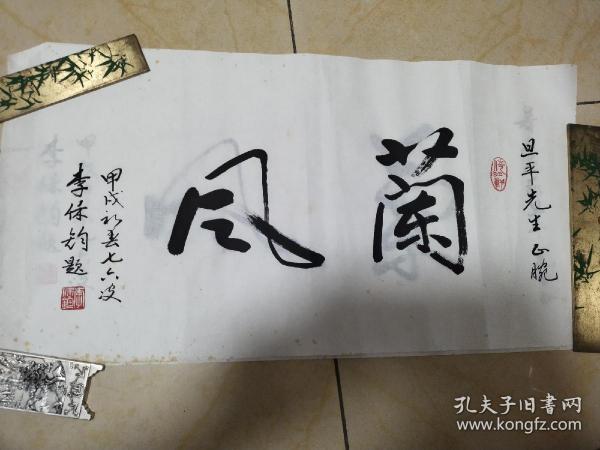 旦平先生正腕
蘭风
甲戌初春七六叟
李休钧题
孔夫子旧书网
www.kongfz.com